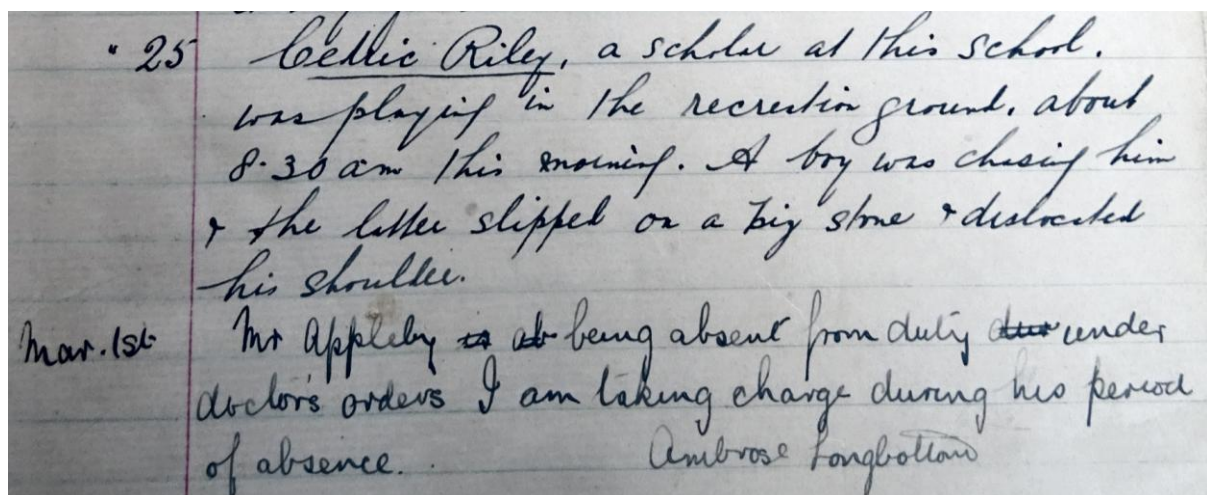 " 25 Cedric Riley, a scholar at this school.
was playing in the recreation ground, about
8.30 am this morning. A boy was chasing him
& the latter slipped on a big stone & dislocated
his shoulder.
Mar. 1st Mr Appleby is ab being absent from duty due under
doctor's orders I am taking charge during his period
of absence. Ambrose Longbottom